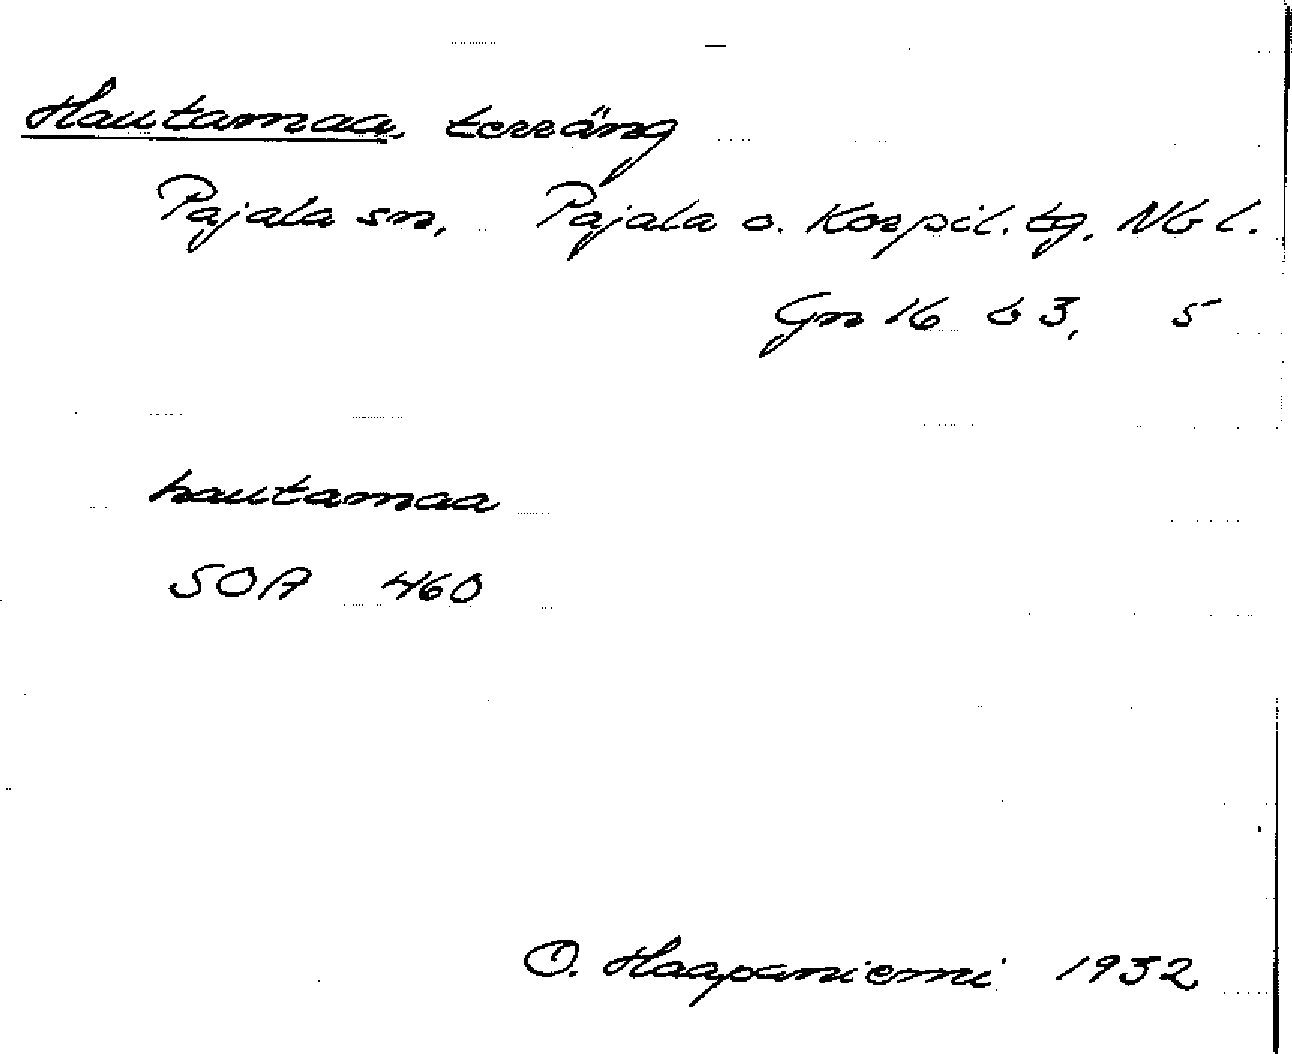 Hautamaa, terräng
Pajala sn, Pajala o. Korpil. tg, Nb l.
Gn 16 b 3, 5
hautamaa
SOA 460
O. Haapaniemi 1932